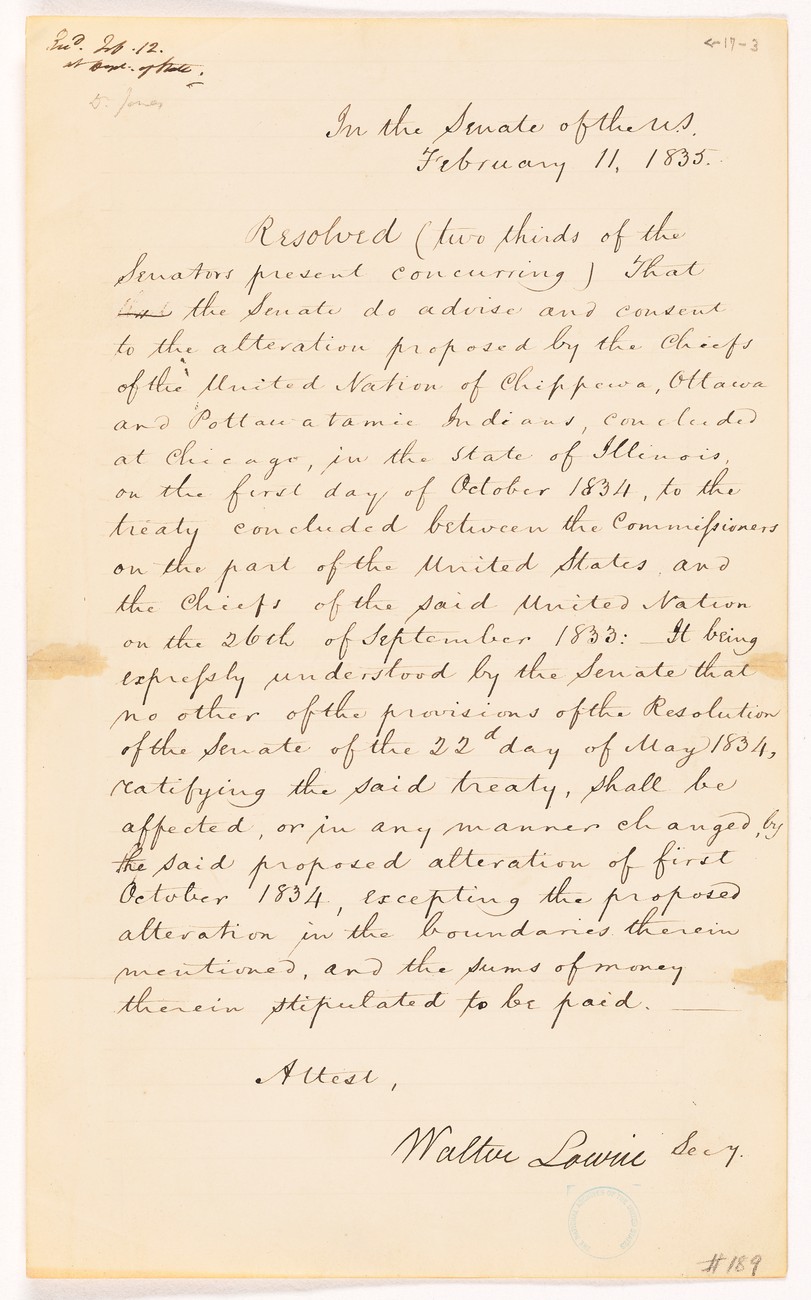 Rec'd. Feb. 12.
at Dept. of State.
D. Jones
<-17-3
In the Senate of the U.S.
February 11, 1835.
Resolved (two thirds of the
Senators present concurring) That
the Senate do advise and consent
to the alteration proposed by the Chiefs
of the United Nation of Chippewa, Ottawa
and Pottawatamie Indians, concluded
at Chicago, in the State of Illinois,
on the first day of October 1834, to the
treaty concluded between the Commissioners
on the part of the United States and
the Chiefs of the said United Nation
on the 26th of September 1833: — It being
expressly understood by the Senate that
no other of the provisions of the Resolution
of the Senate of the 22d day of May 1834,
ratifying the said treaty, shall be
affected, or in any manner changed, by
the said proposed alteration of first
October 1834, excepting the proposed
alteration in the boundaries therein
mentioned, and the sums of money
therein stipulated to be paid. —
Attest,
Walter Lowrie Secy.
#189